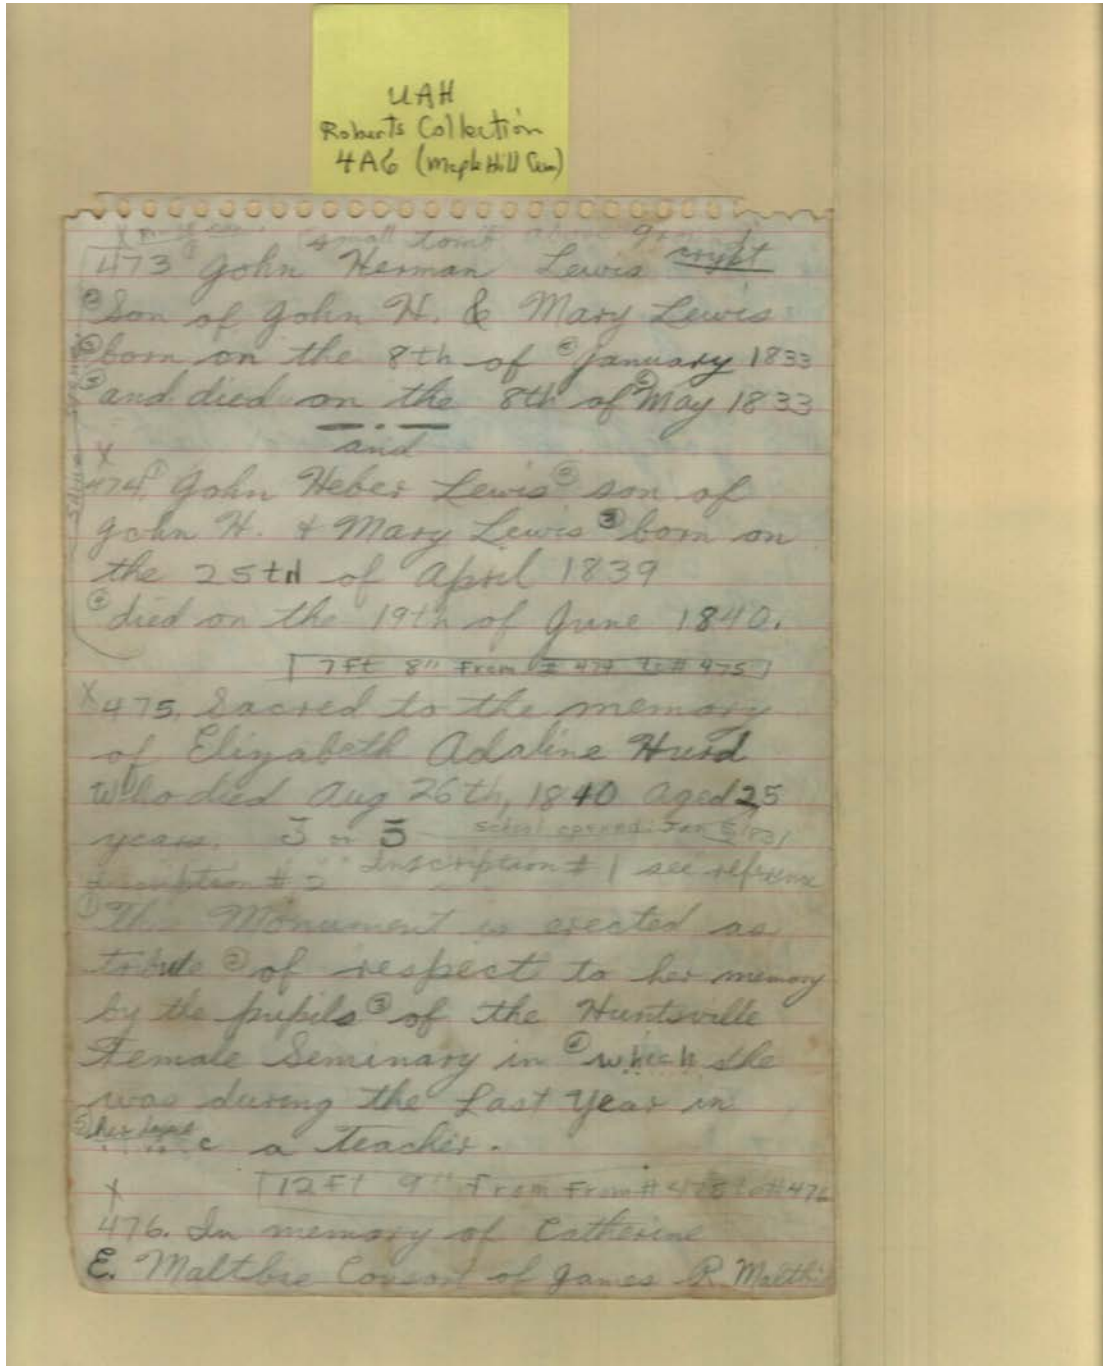 UAH
Roberts Collection
4A6 (Maple Hill Cem)
(small tomb above ground)
473 John Herman Lewis crypt
② Son of John H. & Mary Lewis
③ born on the 8th of ④ January 1833
⑤ and died on the 8th of ⑥ May 1833
and
X
474. ① John Heber Lewis ② son of
John H. & Mary Lewis ③ born on
the 25th of April 1839
④ died on the 19th of June 1840.
7 Ft 8" From # 474 to # 475
X 475. Sacred to the memory
of Elizabeth Adaline Hurd
Who died Aug 26th, 1840 Aged 25
years. 3 or 5 school opened: Jan 5 1831
Inscription # 1 see reference
inscription # 2
① The Monument is erected as
tribute ② of respect to her memory
by the pupils ③ of the Huntsville
Female Seminary in ④ which she
was during the Last Year in
⑤ a teacher.
X 12 Ft 9" From From # 475 to # 476
476. In memory of Catherine
E. Maltbie Consort of James R. Maltbie